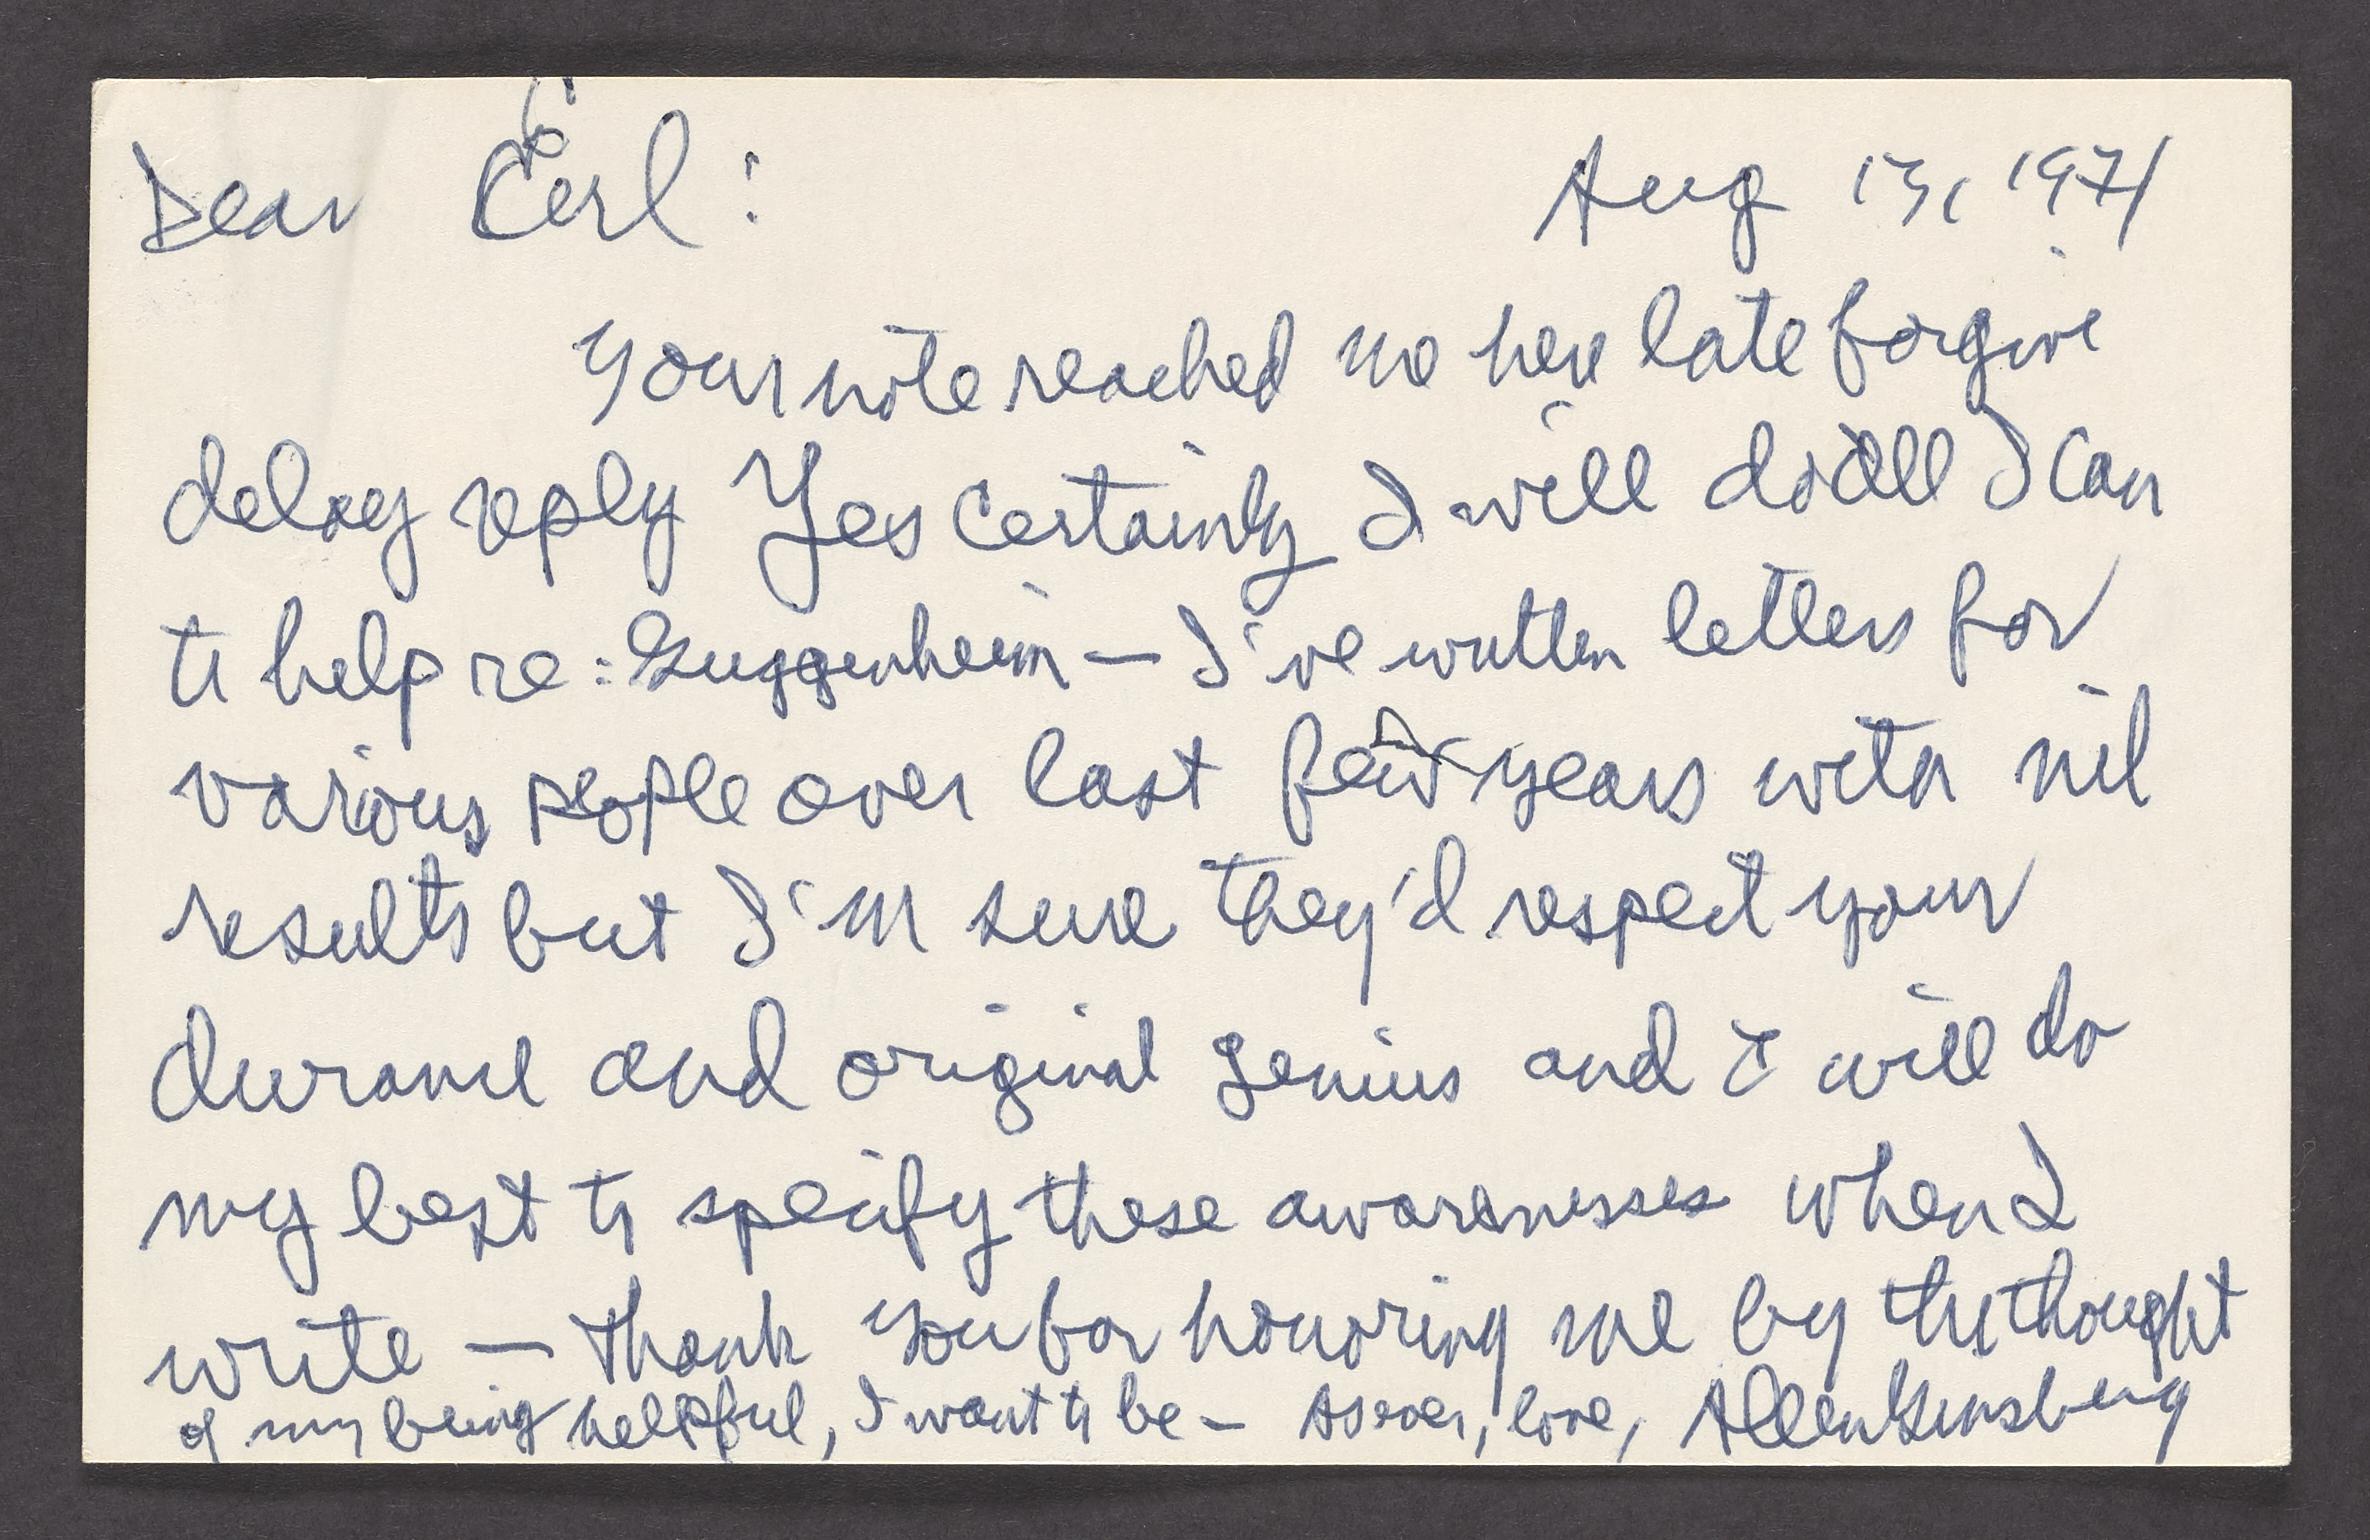 Dear Carl: Aug 13, 1971
Your note reached me here late forgive
delay reply Yes certainly I will do all I can
to help re: Guggenheim — I've written letters for
various people over last few years with nil
results but I'm sure they'd respect your
durance and original genius and I will do
my best to specify these awarenesses when I
write — Thank you for honoring me by the thought
of my being helpful, I want to be — As ever, love, Allen Ginsberg